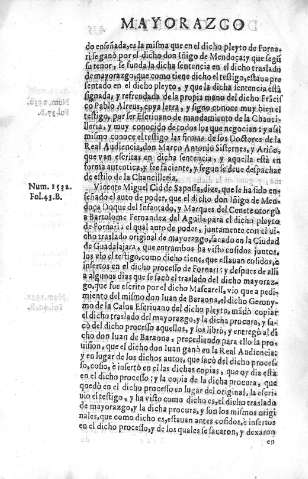 MAYORAZGO
do enseñada, es la misma que en el dicho pleyto de Forna-
ri ganò por el dicho don Iñigo de Mendoça; y que segũ
su tenor, se funda la dicha sentencia en el dicho traslado
de mayorazgo, que como tiene dicho el testigo, estaua pre
sentado en el dicho pleyto, y que la dicha sentencia està
signada, y refrendada de la propia mano del dicho Frãcis
co Pablo Alreus, cuya letra, y signo conoce muy bien el
testigo, por ser Escriuano de mandamiento de la Chanci-
lleria, y muy conocido de todos los que negocian: y assi
mismo conoce el testigo las firmas de los Doctores de la
Real Audiencia, don Marco Antonio Sisternes, y Ariño,
que van escritas en dicha sentencia, y aquella està en
forma autentica, y fee faciente, y segun se deue despachar
de estilo de la Chancilleria.
Num. 1532.
Fol. 43. B.
Vicente Miguel Cid de Saposa, dize, que le ha sido en-
señado el auto de poder, que el dicho don Iñigo de Men-
doça Duque del Infantado, y Marques del Cenete otorgò
a Bartolome Fernandez del Aguila para el dicho pleyto
de Fornari: el qual auto de poder, juntamente con el di-
cho traslado original de mayorazgo, sacado en la Ciudad
de Guadalajara, que entrambos ha visto cosidos juntos,
los viò el testigo, como dicho tiene, que estauan cosidos, è
insertos en el dicho processo de Fornari: y despues de alli
a algunos dias que se sacò el traslado del dicho mayoraz-
go, que fue escrito por el dicho Mascarell, viò que a pedi-
miento del mismo don Iuan de Baraona, el dicho Gerony-
mo de la Calua Escriuano del dicho pleyto, mãdò copiar
el dicho traslado del mayorazgo, y la dicha procura, y sa-
cò del dicho processo aquellos, y los librò, y entregò al di
cho don Iuan de Baraona, precediendo para ello la pro-
uision, que el dicho don Iuan ganò en la Real Audiencia:
y en lugar de los dichos autos, que sacò del dicho proces-
so, cosiò, è insertò en èl las dichas copias, que oy dia està
en el dicho processo: y la copia de la dicha procura, que
quedò en el dicho processo en lugar del original, la escri-
uiò el testigo, y ha visto como dicho es, el dicho traslado
de mayorazgo, y la dicha procura, y son los mismos origi-
nales, que como dicho es, estauan antes cosidos, è insertos
en el dicho processo, y de los quales se sacaron, y dexaron
en